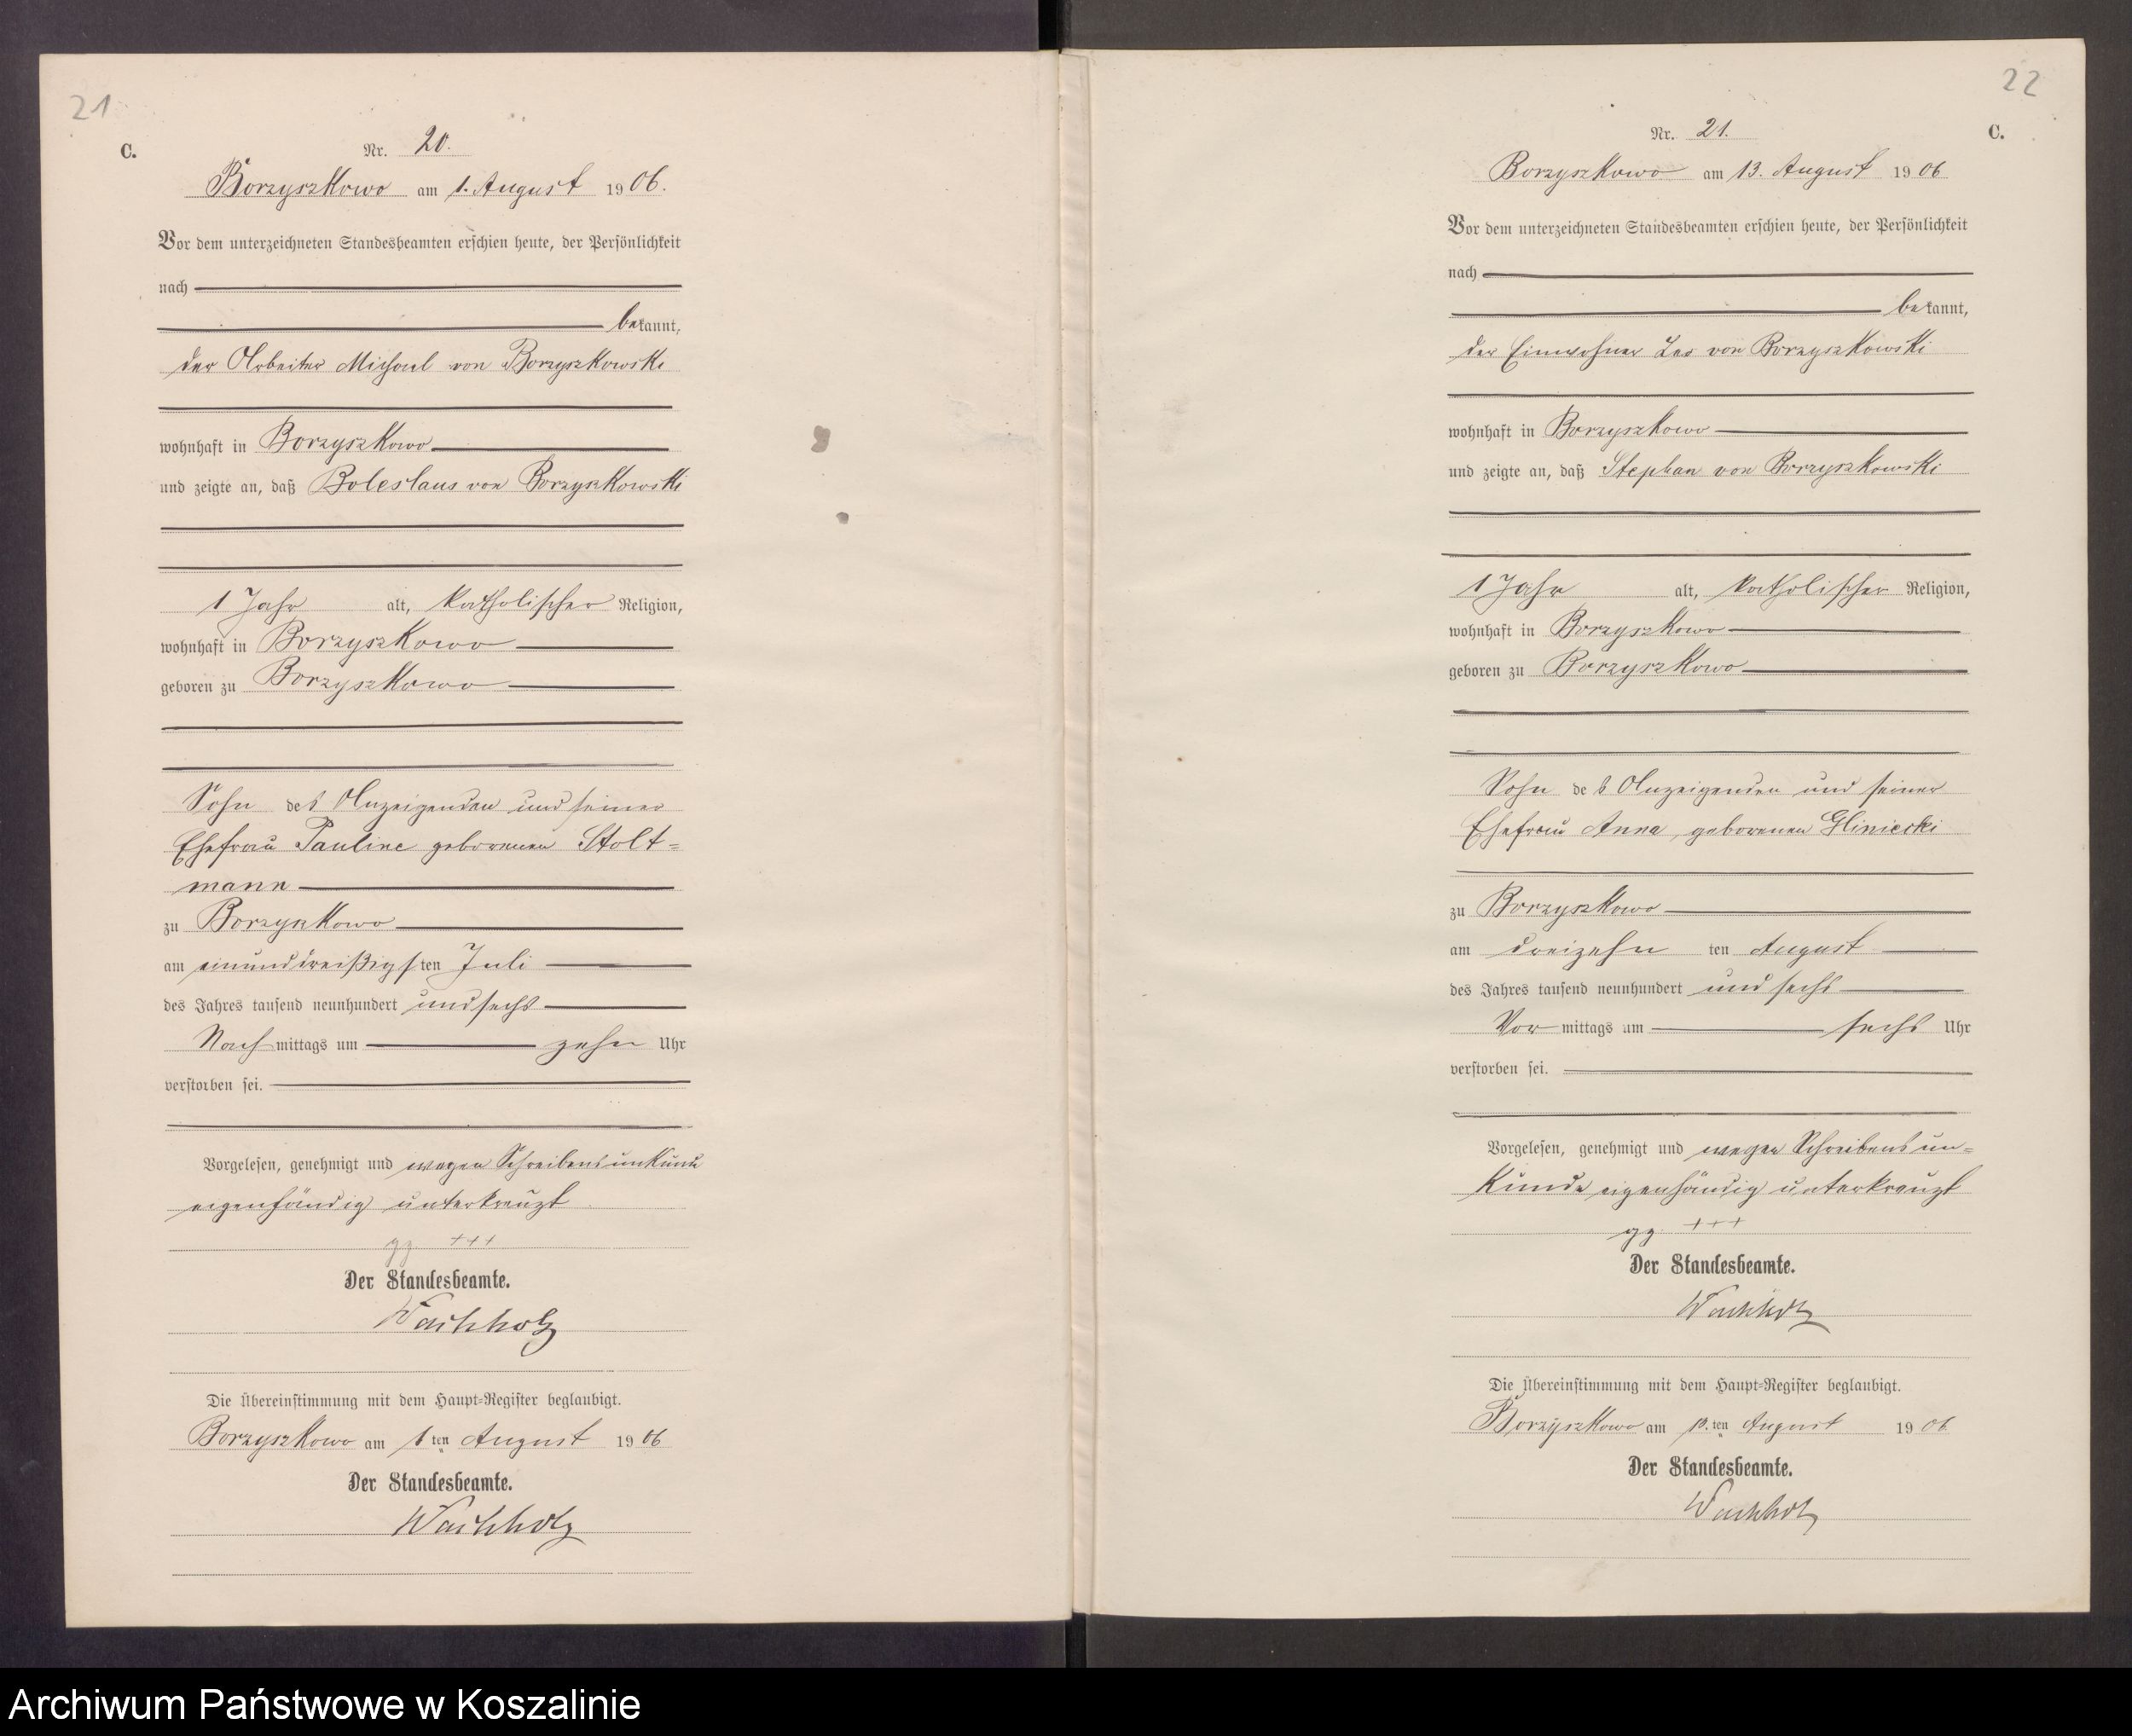 21
C.
Nr. 20.
Borzyszkowo am 1. August 1906.
Vor dem unterzeichneten Standesbeamten erschien heute, der Persönlichkeit
nach
bekannt,
der Arbeiter Michael von Borzyszkowski
wohnhaft in Borzyszkowo
und zeigte an, daß Boleslaus von Borzyszkowski
1 Jahr alt, katholischer Religion,
wohnhaft in Borzyszkowo
geboren zu Borzyszkowo
Sohn des Anzeigenden und seiner
Ehefrau Pauline geborenen Stolt=
mann
zu Borzyszkowo
am einunddreißigsten Juli
des Jahres tausend neunhundert und sechs
Nachmittags um zehn Uhr
verstorben sei.
Vorgelesen, genehmigt und wegen Schreibensunkunde
eigenhändig unterkreuzt
gz +++
Der Standesbeamte.
Wachholz
Die Übereinstimmung mit dem Haupt=Register beglaubigt.
Borzyszkowo am 1ten August 1906
Der Standesbeamte.
Wachholz
22
C.
Nr. 21.
Borzyszkowo am 13. August 1906
Vor dem unterzeichneten Standesbeamten erschien heute, der Persönlichkeit
nach
bekannt,
der Einwohner Leo von Borzyszkowski
wohnhaft in Borzyszkowo
und zeigte an, daß Stephan von Borzyszkowski
1 Jahr alt, katholischer Religion,
wohnhaft in Borzyszkowo
geboren zu Borzyszkowo
Sohn des Anzeigenden und seiner
Ehefrau Anna, geborenen Gliniecki
zu Borzyszkowo
am dreizehnten August
des Jahres tausend neunhundert und sechs
Vormittags um sechs Uhr
verstorben sei.
Vorgelesen, genehmigt und wegen Schreibensun=
kunde eigenhändig unterkreuzt
gz +++
Der Standesbeamte.
Wachholz
Die Übereinstimmung mit dem Haupt=Register beglaubigt.
Borzyszkowo am ten August 1906
Der Standesbeamte.
Wachholz
Archiwum Państwowe w Koszalinie